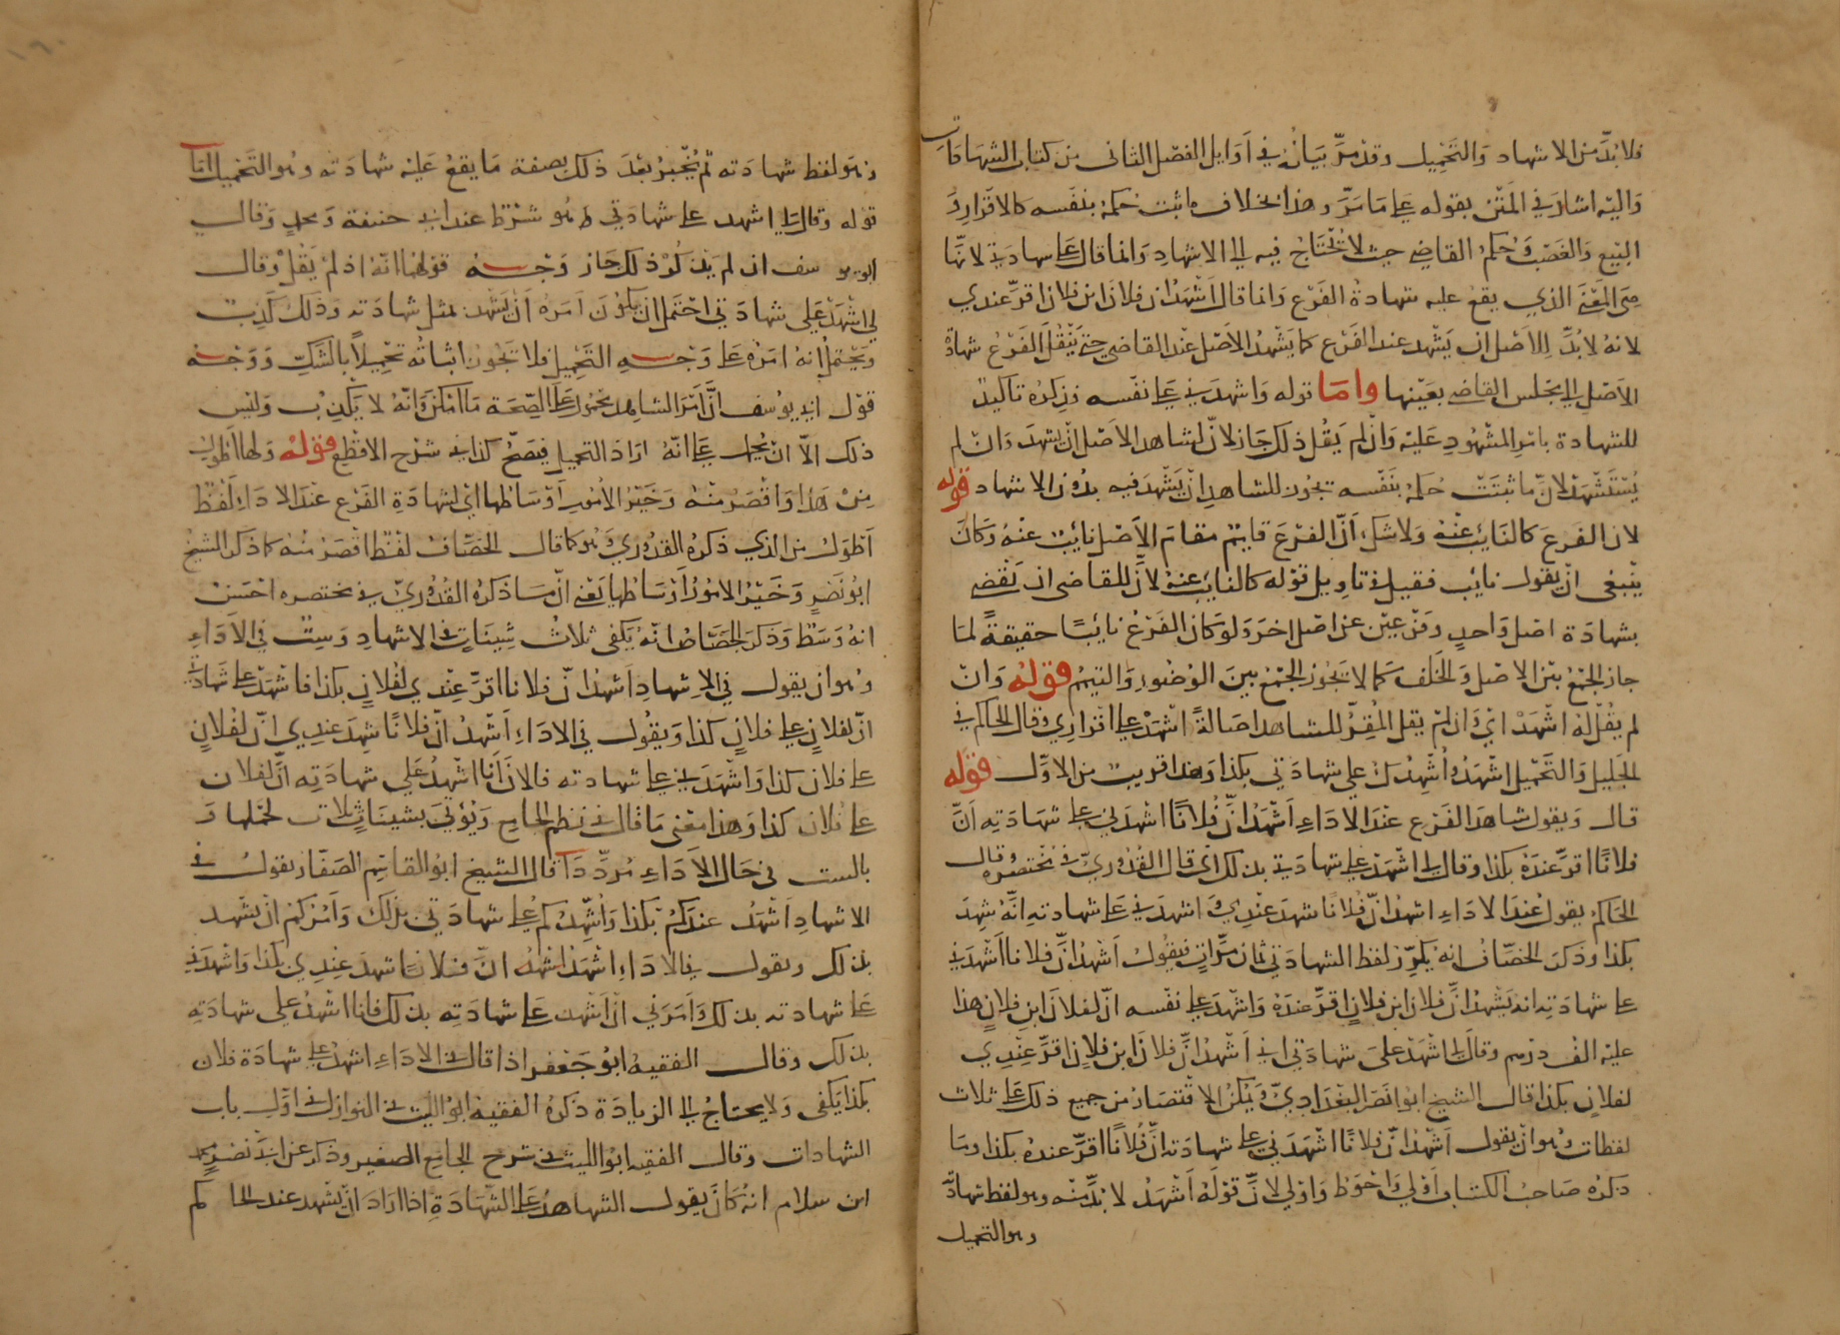 فلا بدّ من الاشهاد والتحميل وقد مرّ بيانه في أوايل الفصل الثاني من كتاب الشهادات
واليه اشار في المتن بقوله على ما مرّ وهذا بخلاف ما ثبت حكمه بنفسه كالاقرار و
البيع والغصب وحكم القاضي حيث لا يحتاج فيه الى الاشهاد وانما قال على شهادتي لانها
هي المعنى الذي يقع عليه شهادة الفرع وانما قال أشهد ان فلان ابن فلان اقرّ عندي
لانه لا بدّ للأصل ان يشهد عند الفرع كما يشهد الاصل عند القاضي حتى ينقل الفرع شهادة
الاصل الى مجلس القاضي بعينها واما قوله واشهدني على نفسه فذكره تاكيد
للشهادة بامر المشهود عليه وان لم يقل ذلك جاز لانّ لشاهد الاصل ان يشهد وان لم
يُستشهد لانّ ما ثبت حكمه بنفسه تجوز للشاهد ان يشهد فيه بدون الاشهاد قوله
لان الفرع كالنايب عنه ولا شك أنّ الفرع قايم مقام الاصل نايب عنه وكان
ينبغي ان يقول نايب فقيل في تاويل قوله كالنايب عنه لانّ للقاضي ان يقضي
بشهادة اصل واحدٍ وفرعين عن اصل اخر ولو كان الفرع نائبًا حقيقةً لما
جاز الجمع بين الاصل والخلف كما لا يجوز الجمع بين الوضوء والتيمم قوله وان
لم يقل له اشهد اي وان لم يقل المُقِرُّ للشاهد اصالةً اشهد على اقراري وقال الحاكم في
الجليل والتحميل اشهد و أشهدك على شهادتي بكذا وهذا قريب من الاوّل قوله
قال ويقول شاهد الفرع عند الاداءِ أشهد انّ فُلانًا اشهدني على شهادته أنّ
فلانًا اقرّ عنده بكذا وقال لي اشهد على شهادتي بذلك اي قال القدوريّ في مختصره وقال
الحاكم يقول عند الاداءِ اشهد انّ فُلانًا شهد عندي و اشهدني على شهادته انّه شهد
بكذا وذكر الخصّاف انه يكرّر لفظ الشهادتي ثمان مرّاتٍ فيقول أشهد انّ فلانا أشهدني
على شهادته انه يشهد انّ فلان ابن فلانٍ اقرّ عنده واشهد على نفسه انّ لفلان ابن فلانٍ هذا
عليه الف درهم وقال لي اشهد على شهادتي اني أشهد انّ فلان ابن فلان اقرّ عندي
لفلانٍ بكذا قال الشيخ ابو انصر البغداديّ ويمكن الاقتصار من جميع ذلك على ثلاث
لفظات وهو ان يقول أشهد انّ فلانًا اشهدني على شهادته انّ فُلانًا اقرّ عنده بكذا وما
ذكره صاحب الكتاب أولى وأحوط واولى لانّ قوله أشهد لا بدّ منه وهو لفظ شهادة
وهو التحميل
وهو لفظ شهادته ثم يُخبر بعد ذلك بصفة ما يقع عليه شهادته وهو التحميل التا
قوله وقال لي اشهد على شهادتي وهو شرط عند ابي حنيفة ومحمد وقال
ابو يو سف ان لم يذكر ذلك جاز وجـــه قولهما انّه اذ لم يقل وقال
لي اشهد على شهادتي احتمل ان يكون امره أن يشهد بمثل شهادته وذلك كذب
ويحتمل انه امره على وجه التحميل فلا تجوز اثباته تحميلًا بالشك ووجـــه
قول ابي يوسف انّ أمر الشاهد محمول على الصحة ما امكن وانّه لا يكذب وليس
ذلك الّا ان يحمل على انّه اراد التحميل فيصح كذا في شرح الاقطع قوله ولها أطول
من هذا واقصر منه وخير الأمور أوساطها اي لشهادة الفرع عند الاداء لفظ
أطول من الذي ذكره القدوري وهو كما قال الخصّاف لفظ اقصر منه كما ذكر الشيخ
ابو نصر وخير الامور أوساطها يعني انّ ما ذكره القدوريّ في مختصره احسن
انه وسط وذكر الجصّاص انّه يكفي ثلاث شينات في الاشهاد وست في الاداءِ
وهو ان يقول في الاشهاد أشهد انّ فلانا اقرّ عندي لفلان بكذا فاشهد على شهادتي
انّ لفلانٍ على فلانٍ كذا ويقول في الاداءِ أشهد انّ فلانًا شهد عندي انّ لفلانٍ
على فلان كذا واشهدني على شهادته فالان أنا اشهد على شهادته انّ لفلان
على فلان كذا وهذا معنى ما قال في نظم الجامع ويُؤتى بشينات ثلاث لحملها و
بالست في حال الاداء مردّدا قال الشيخ ابو القاسم الصفار يقول في
الاشهاد أشهد عندكم بكذا واشهدكم على شهادتي بذلك وآمركم ان يشهد
بذلك ويقول في الاداءِ اشهد اشهد انّ فلانًا شهد عندي بكذا واشهدني
على شهادته بذلك وأمرني ان أشهد على شهادته بذلك فانا اشهد على شهادته
بذلك وقال الفقيه ابو جعفر اذا قال في الاداء اشهد على شهادة فلان
بكذا يكفي ولا يحتاج الى الزيادة ذكره الفقيه ابو الليث في النوازل في اوّل باب
الشهادات وقال الفقيه ابو الليث في شرح الجامع الصغير وذكر عن ابي نصر محمد
ابن سلام انه كان يقول الشاهد على الشهادة اذا اراد ان يشهد عند الحاكم